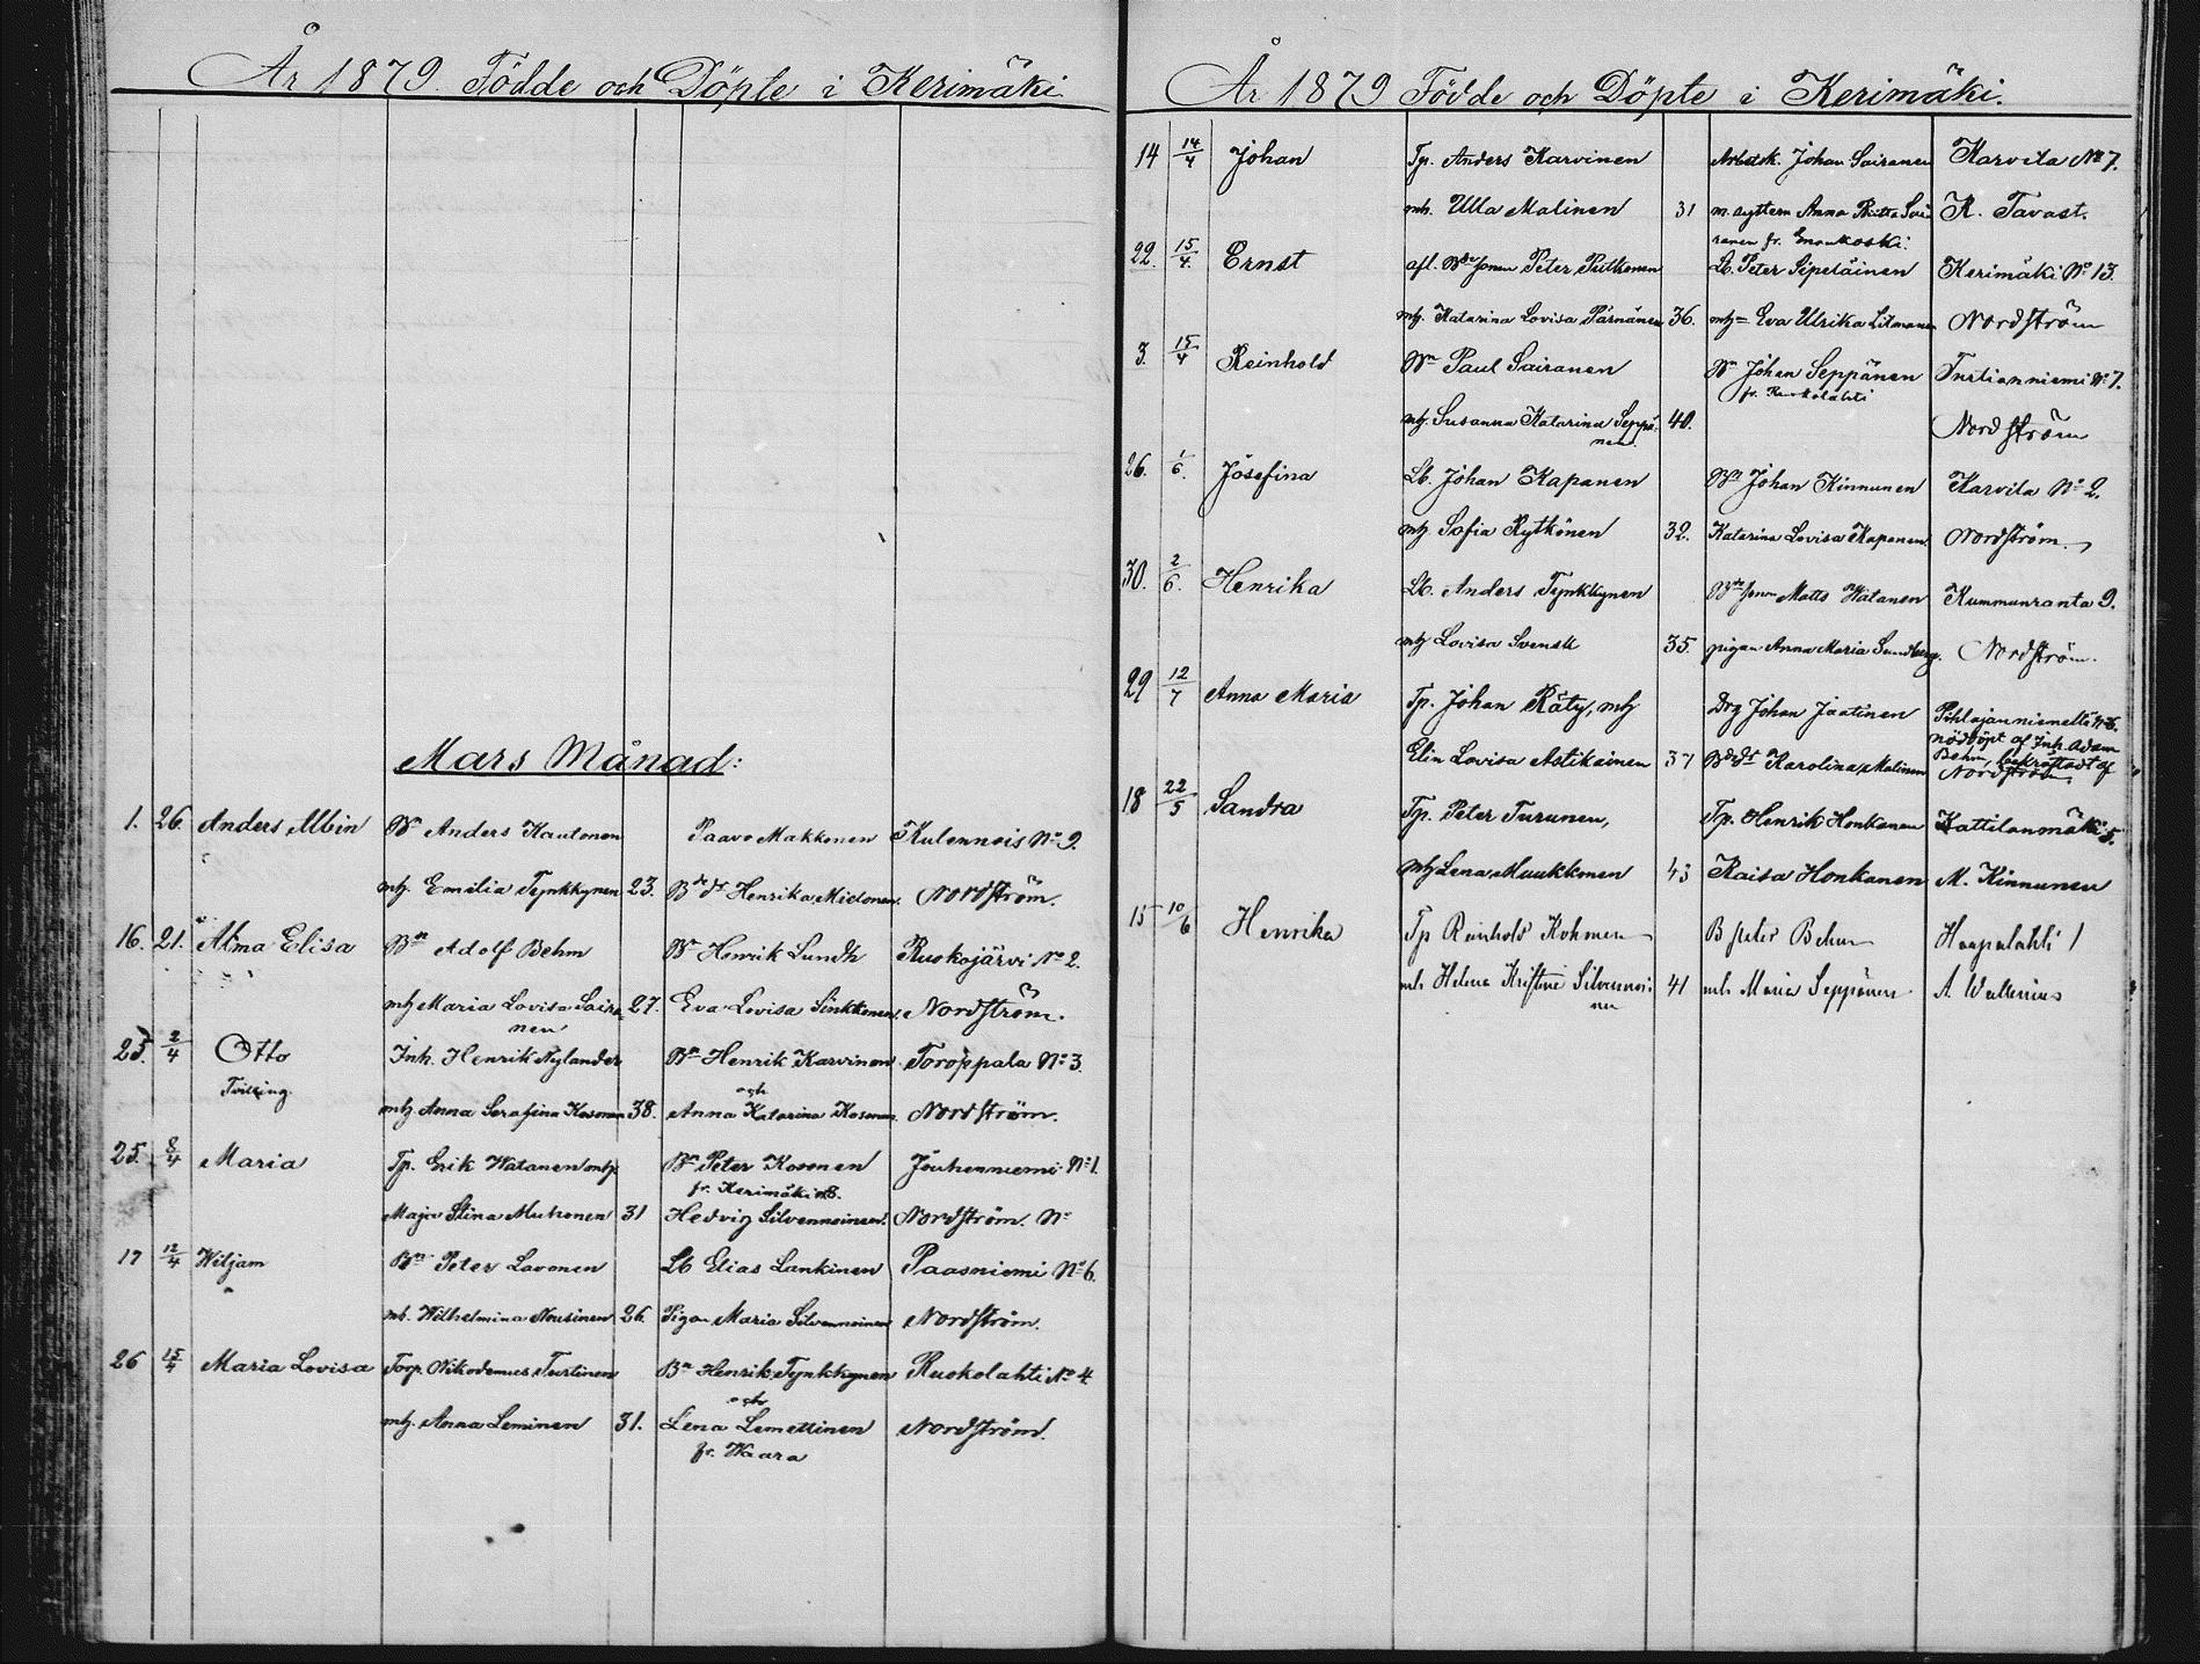 År 1879. Födde och Döpte i Kerimäki
Mars Månad:
1. 26. Anders Albin Bn Anders Kautonen Paavo Makkonen Kulennois No 9.
mh. Emilia Tynkkynen 23. Bdedr Henrika Mielonen. Nordström.
16. 21. Alma Elisa Bn Adolf Behm Bn Henrik Lundh Ruokojärvi No 2.
mh Maria Lovisa Saira- 27. Eva Lovisa Sinkkonen. Nordström.
nen
25. 2/4 Otto Inh. Henrik Nylander Bn Henrik Karvinen Toroppala No 3.
Tvilling. och
mh Anna Serafina Kosonen 38. Anna Katarina Kosonen. Nordström.
25. 8/4 Maria Tp. Erik Watanen mh Bn Peter Kosonen Jouhenniemi No 1.
fr. Kerimäki 8.
Maja Stina Muhonen 31 Hedvig Silvennoinen. Nordström. No
17 12/4 Wiljam Bn Peter Lavonen Lb Elias Lankinen Paasniemi No 6.
mh. Wilhelmina Nousinen 26. Pigan Maria Silvennoinen Nordström.
26 15/4 Maria Lovisa Torp. Nikodemus Turtinen Bn Henrik Tynkkynen Ruokolahti No 4.
och
mh. Anna Leminen 31. Lena Lemettinen Nordström.
fr. Waara
År 1879 Födde och Döpte i Kerimäki.
14 14/4 Johan Tp. Anders Karvinen Arbetsk. Johan Sairanen Karvila No 7.
mh. Ulla Malinen 31 m. systern Anna Riitta Sai- K. Tavast.
ranen fr. Enonkoski.
22. 15/4. Ernst afl. Bdesonen Peter Putkonen Lb. Peter Sipeläinen Kerimäki No 13.
mh. Katarina Lovisa Pärnänen 36. mh = Eva Ulrika Litmanen Nordström
3. 15/4 Reinhold Bn Paul Sairanen Bn Johan Seppänen No 7.
fr. Ruokolahti
mh. Susanna Katarina Seppä- 40. Nordström
nen.
26. 1/6. Josefina Lb. Johan Kapanen Bn Johan Kinnunen Karvila No 2.
mh. Sofia Rytkönen 32. Katarina Lovisa Kapanen. Nordström.
30. 2/6. Henrika Lb. Anders Tynkkynen Bdesonen Matts Watanen Kummunranta 9.
mh Lovisa Svensk 35. pigan Anna Maria Sundberg. Nordström.
29 12/7 Anna Maria Tp. Johan Räty, mh Drg Johan Jaatinen Pihlajanniemelt No 6.
nöddöpt af Inh. Adam
Elin Lovisa Astikainen 37 Bdedr Karolina Malinen Behm, bekräftadt af
Nordström
18 22/5 Sandra Tp. Peter Turunen, Tp. Henrik Honkanen Kattilanmäki 5.
mh Lena Muukkonen 43 Kaisa Honkanen M. Kinnunen
15 10/6 Henrika Tp Reinhold Kohonen B Peter Behm Haapalahti 1
mh Helena Kristina Silvennoi- 41 mh. Maria Seppänen A. Wallenius
nen